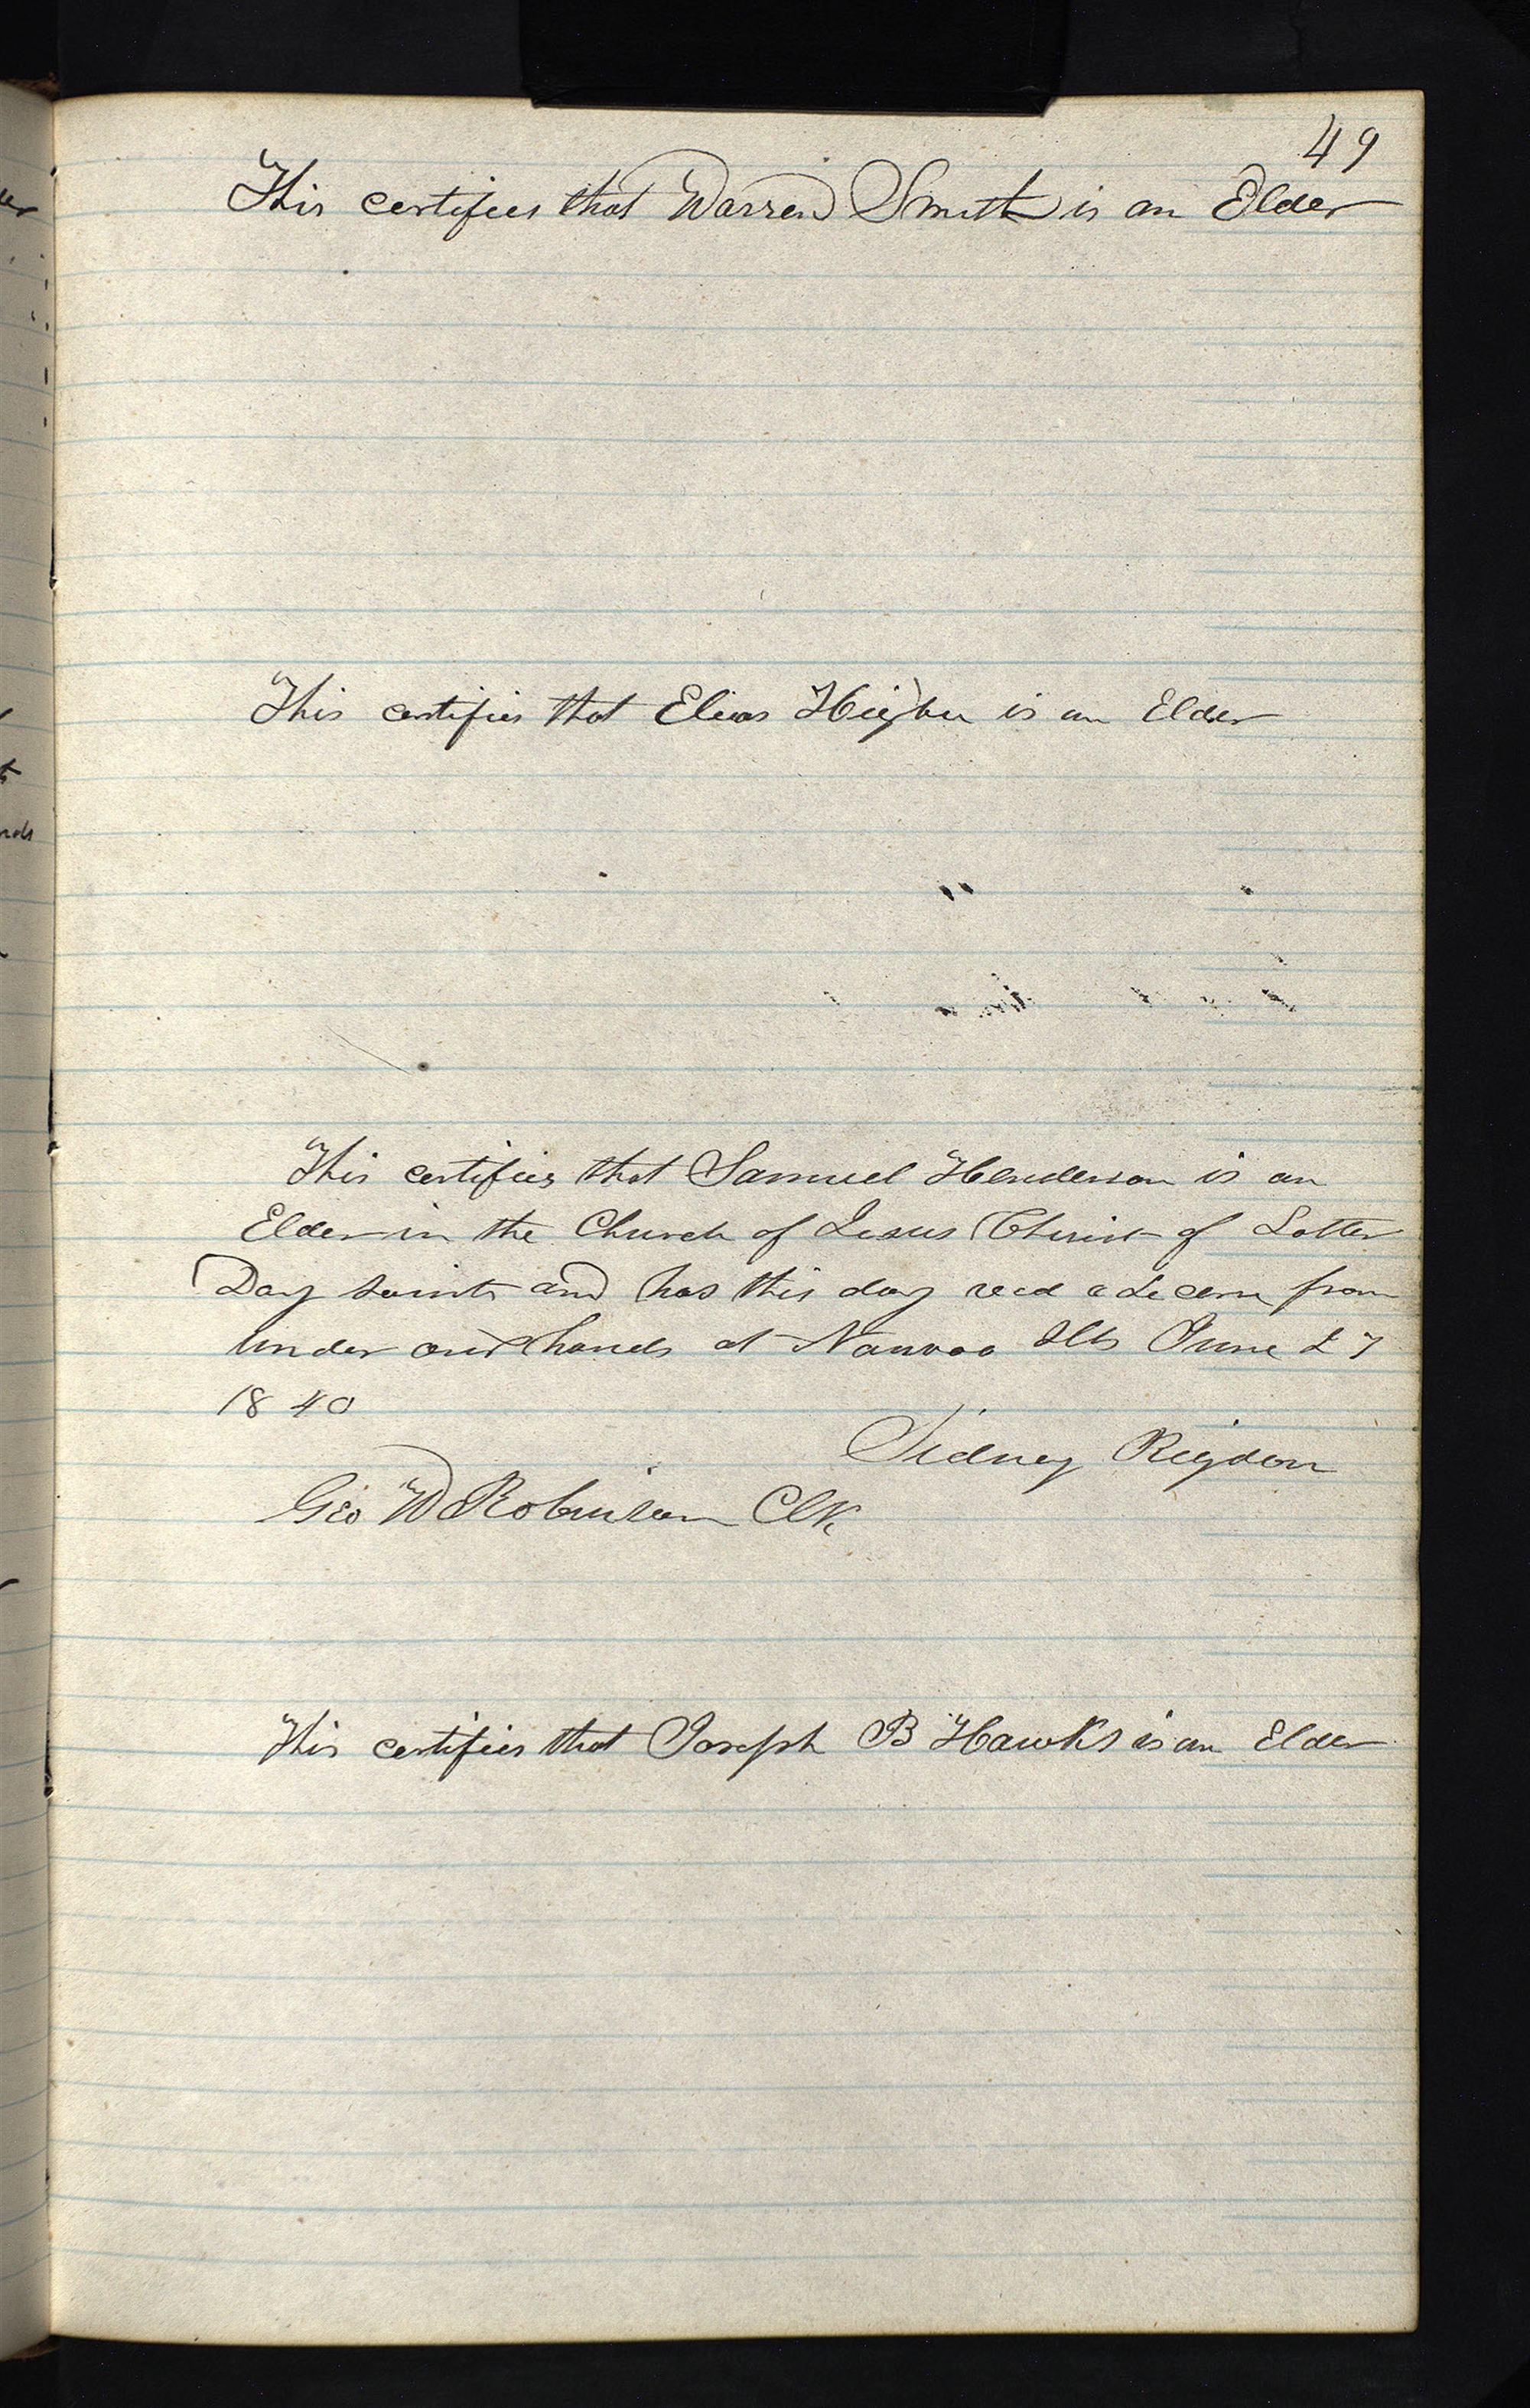 49
This certifies that Warren Smith is an Elder
This certifies that Elias Higbee is an Elder
This certifies that Samuel Henderson is an
Elder in the Church of Jesus Christ of Latter
Day saints and has this day recd a from
under our hands at Nauvoo Ills June 27
1840
Sidney Rigdon
Geo W Robinson Clk
This certifies that Joseph B Hawks is an Elder